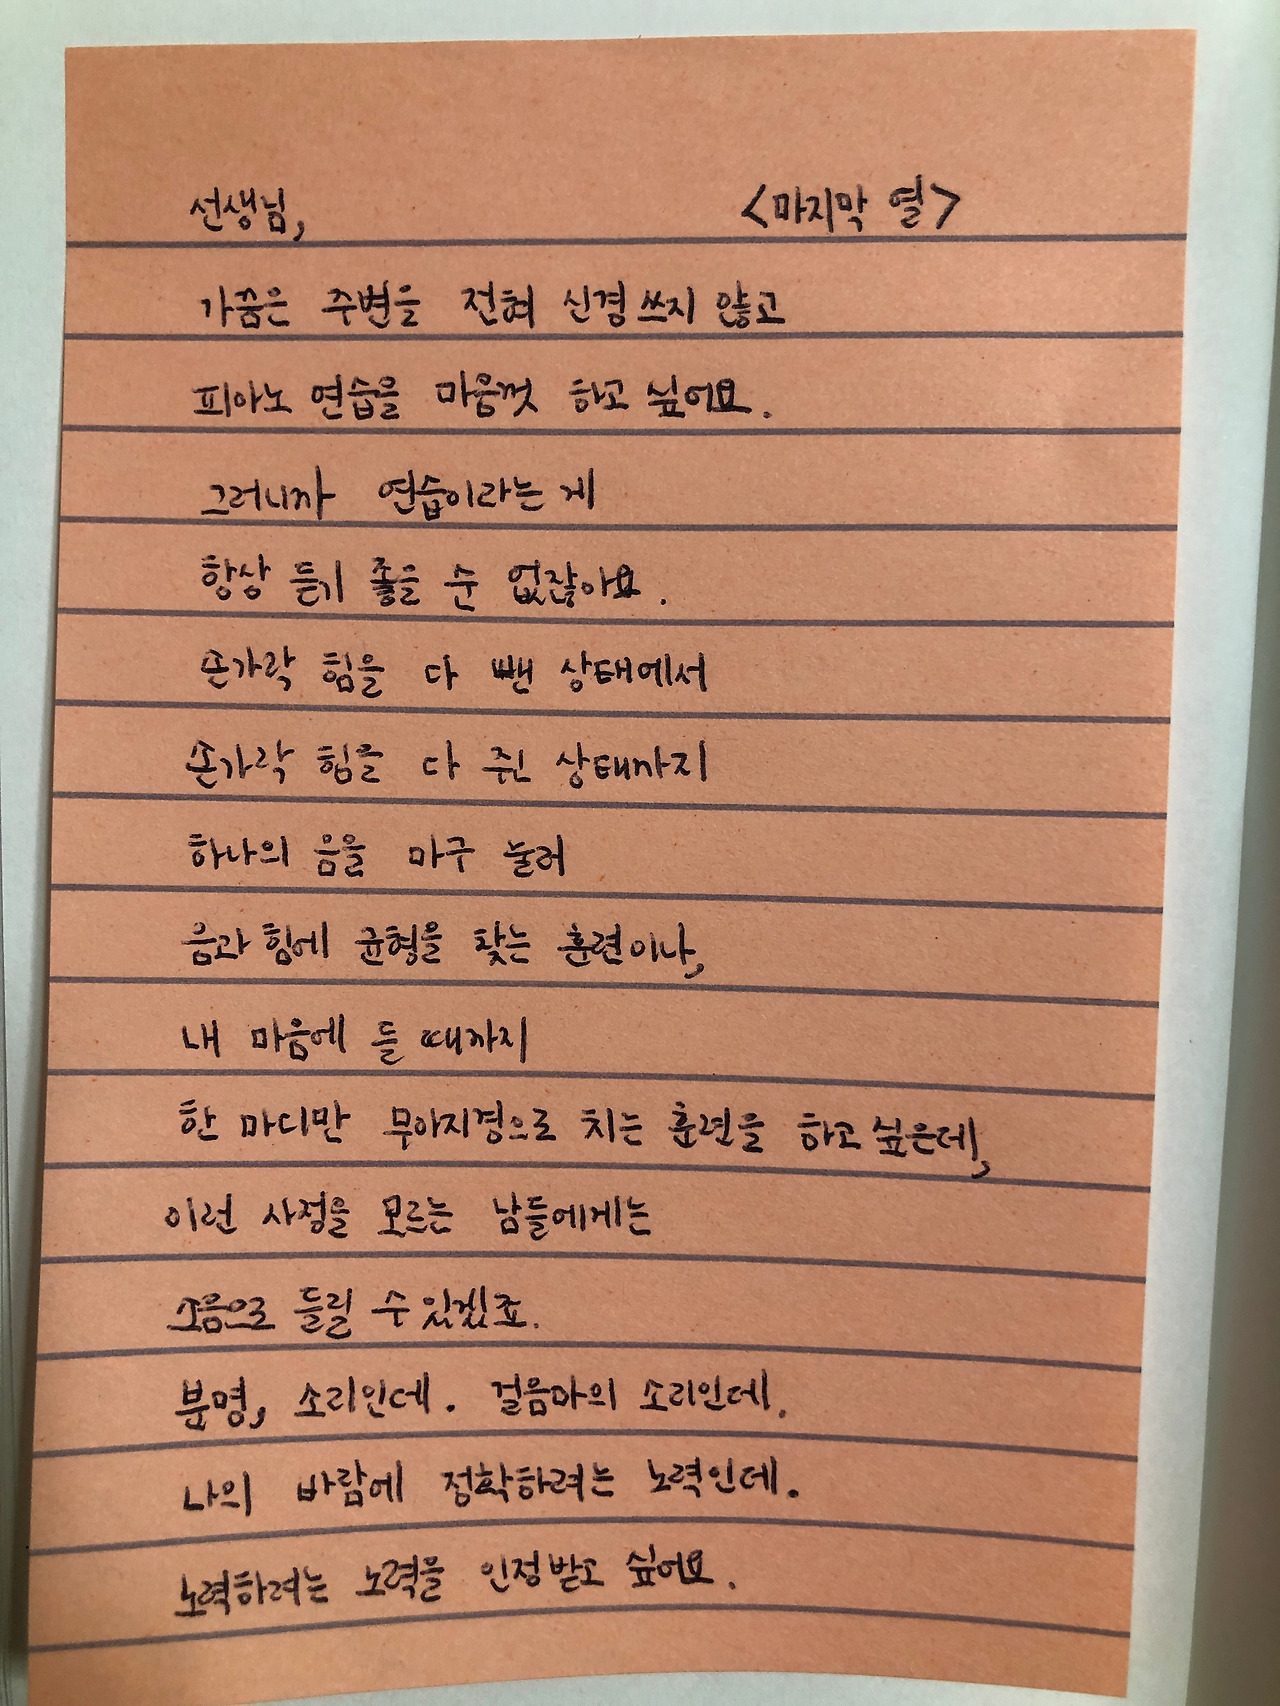 선생님, <마지막 열>
가끔은 주변을 전혀 신경 쓰지 않고
피아노 연습을 마음껏 하고 싶어요.
그러니까 연습이라는 게
항상 듣기 좋을 순 없잖아요.
손가락 힘을 다 뺀 상태에서
손가락 힘을 다 쥔 상태까지
하나의 음을 마구 눌러
음과 힘에 균형을 찾는 훈련이나,
내 마음에 들 때까지
한 마디만 무아지경으로 치는 훈련을 하고 싶은데,
이런 사정을 모르는 남들에게는
소음으로 들릴 수 있겠죠.
분명, 소리인데. 걸음마의 소리인데.
나의 바람에 정확하려는 노력인데.
노력하려는 노력을 인정받고 싶어요.